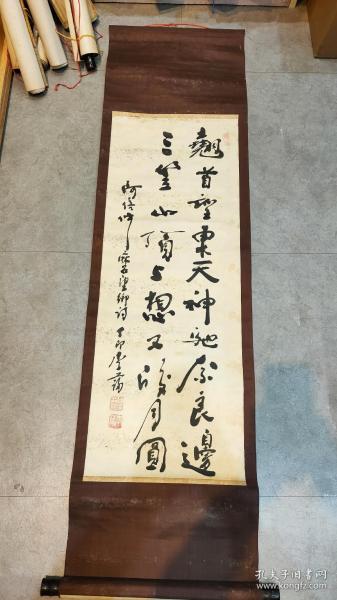 翹首望東天神馳奈良邊
三笠山頂上想又皎月圓
阿倍仲麻呂望鄉詩 丁卯 李
孔夫子旧书网
www.kongfz.com